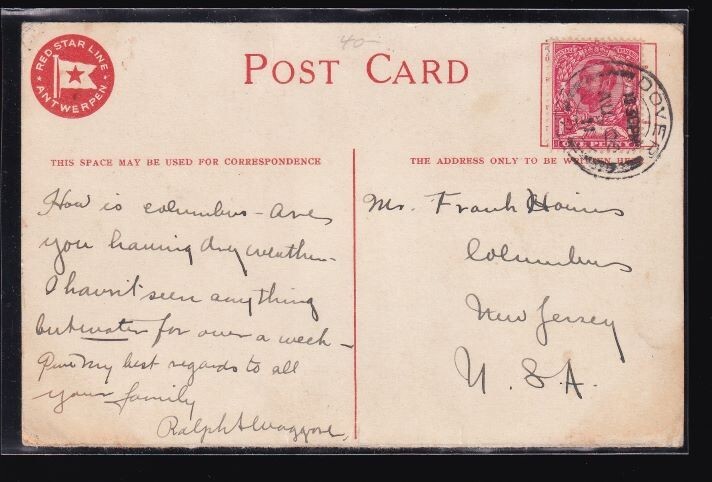 40-
RED STAR LINE
ANTWERPEN
POST CARD
POSTAGE REVENUE
ONE PENNY
DOVER
THIS SPACE MAY BE USED FOR CORRESPONDENCE
How is Columbus - Are
you having dry weather -
I havn't seen anything
but water for over a week -
Give my best regards to all
your family
Ralph
THE ADDRESS ONLY TO BE WRITTEN HERE
Mr. Frank Haines
Columbus
New Jersey
U. S A.